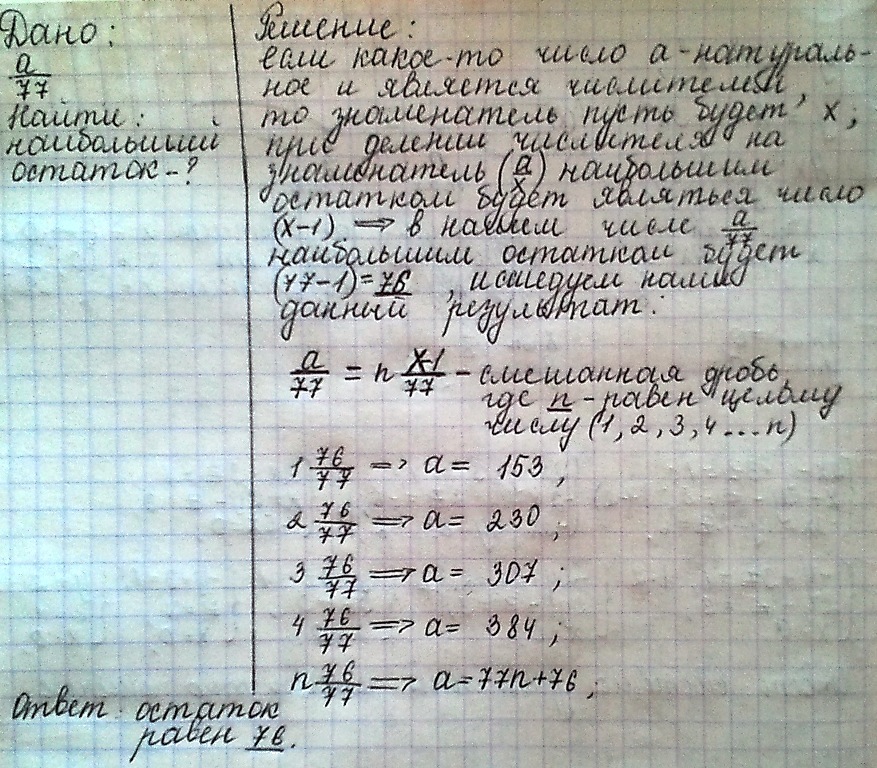 Дано:
a/77
Найти:
наибольший
остаток-?
Решение:
если какое-то число a-натураль-
ное и является числителем,
то знаменатель пусть будет x;
при делении числителя на
знаменатель (a/x) наибольшим
остатком будет являться число
(x-1) ⟹ в нашем числе a/77
наибольшим остатком будет
(77-1)=76, исследуем нами
данный результат:
a/77 = n x-1/77 - смешанная дробь,
где n - равен целому
числу (1, 2, 3, 4 ... n)
1 76/77 => a = 153,
2 76/77 => a = 230;
3 76/77 => a = 307;
4 76/77 => a = 384;
n 76/77 => a=77n+76;
Ответ: остаток
равен 76.